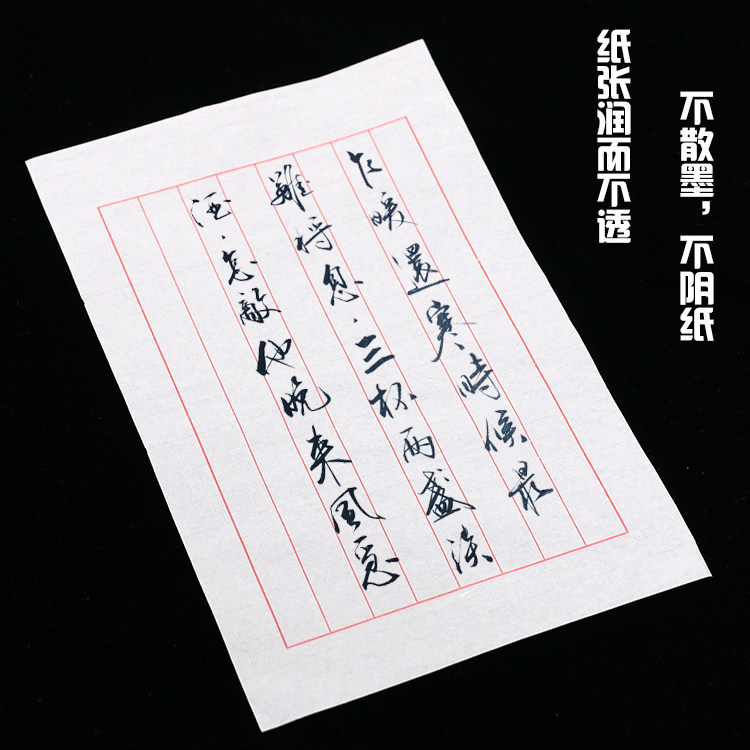 纸张润而不透
不散墨，不阴纸
乍暖還寒時候最
難将息·三杯兩盞淡
酒·怎敵他晚来風急